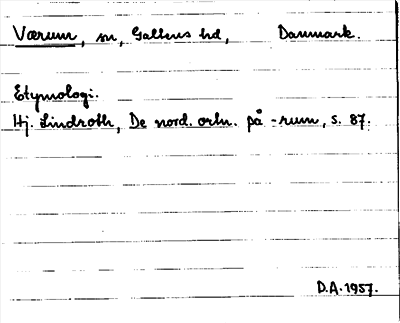 Værum, sn, Galtens hd, Danmark.
Etymologi.
Hj. Lindroth, De nord. ortn. på -rum, s. 87.
D.A. 1957.